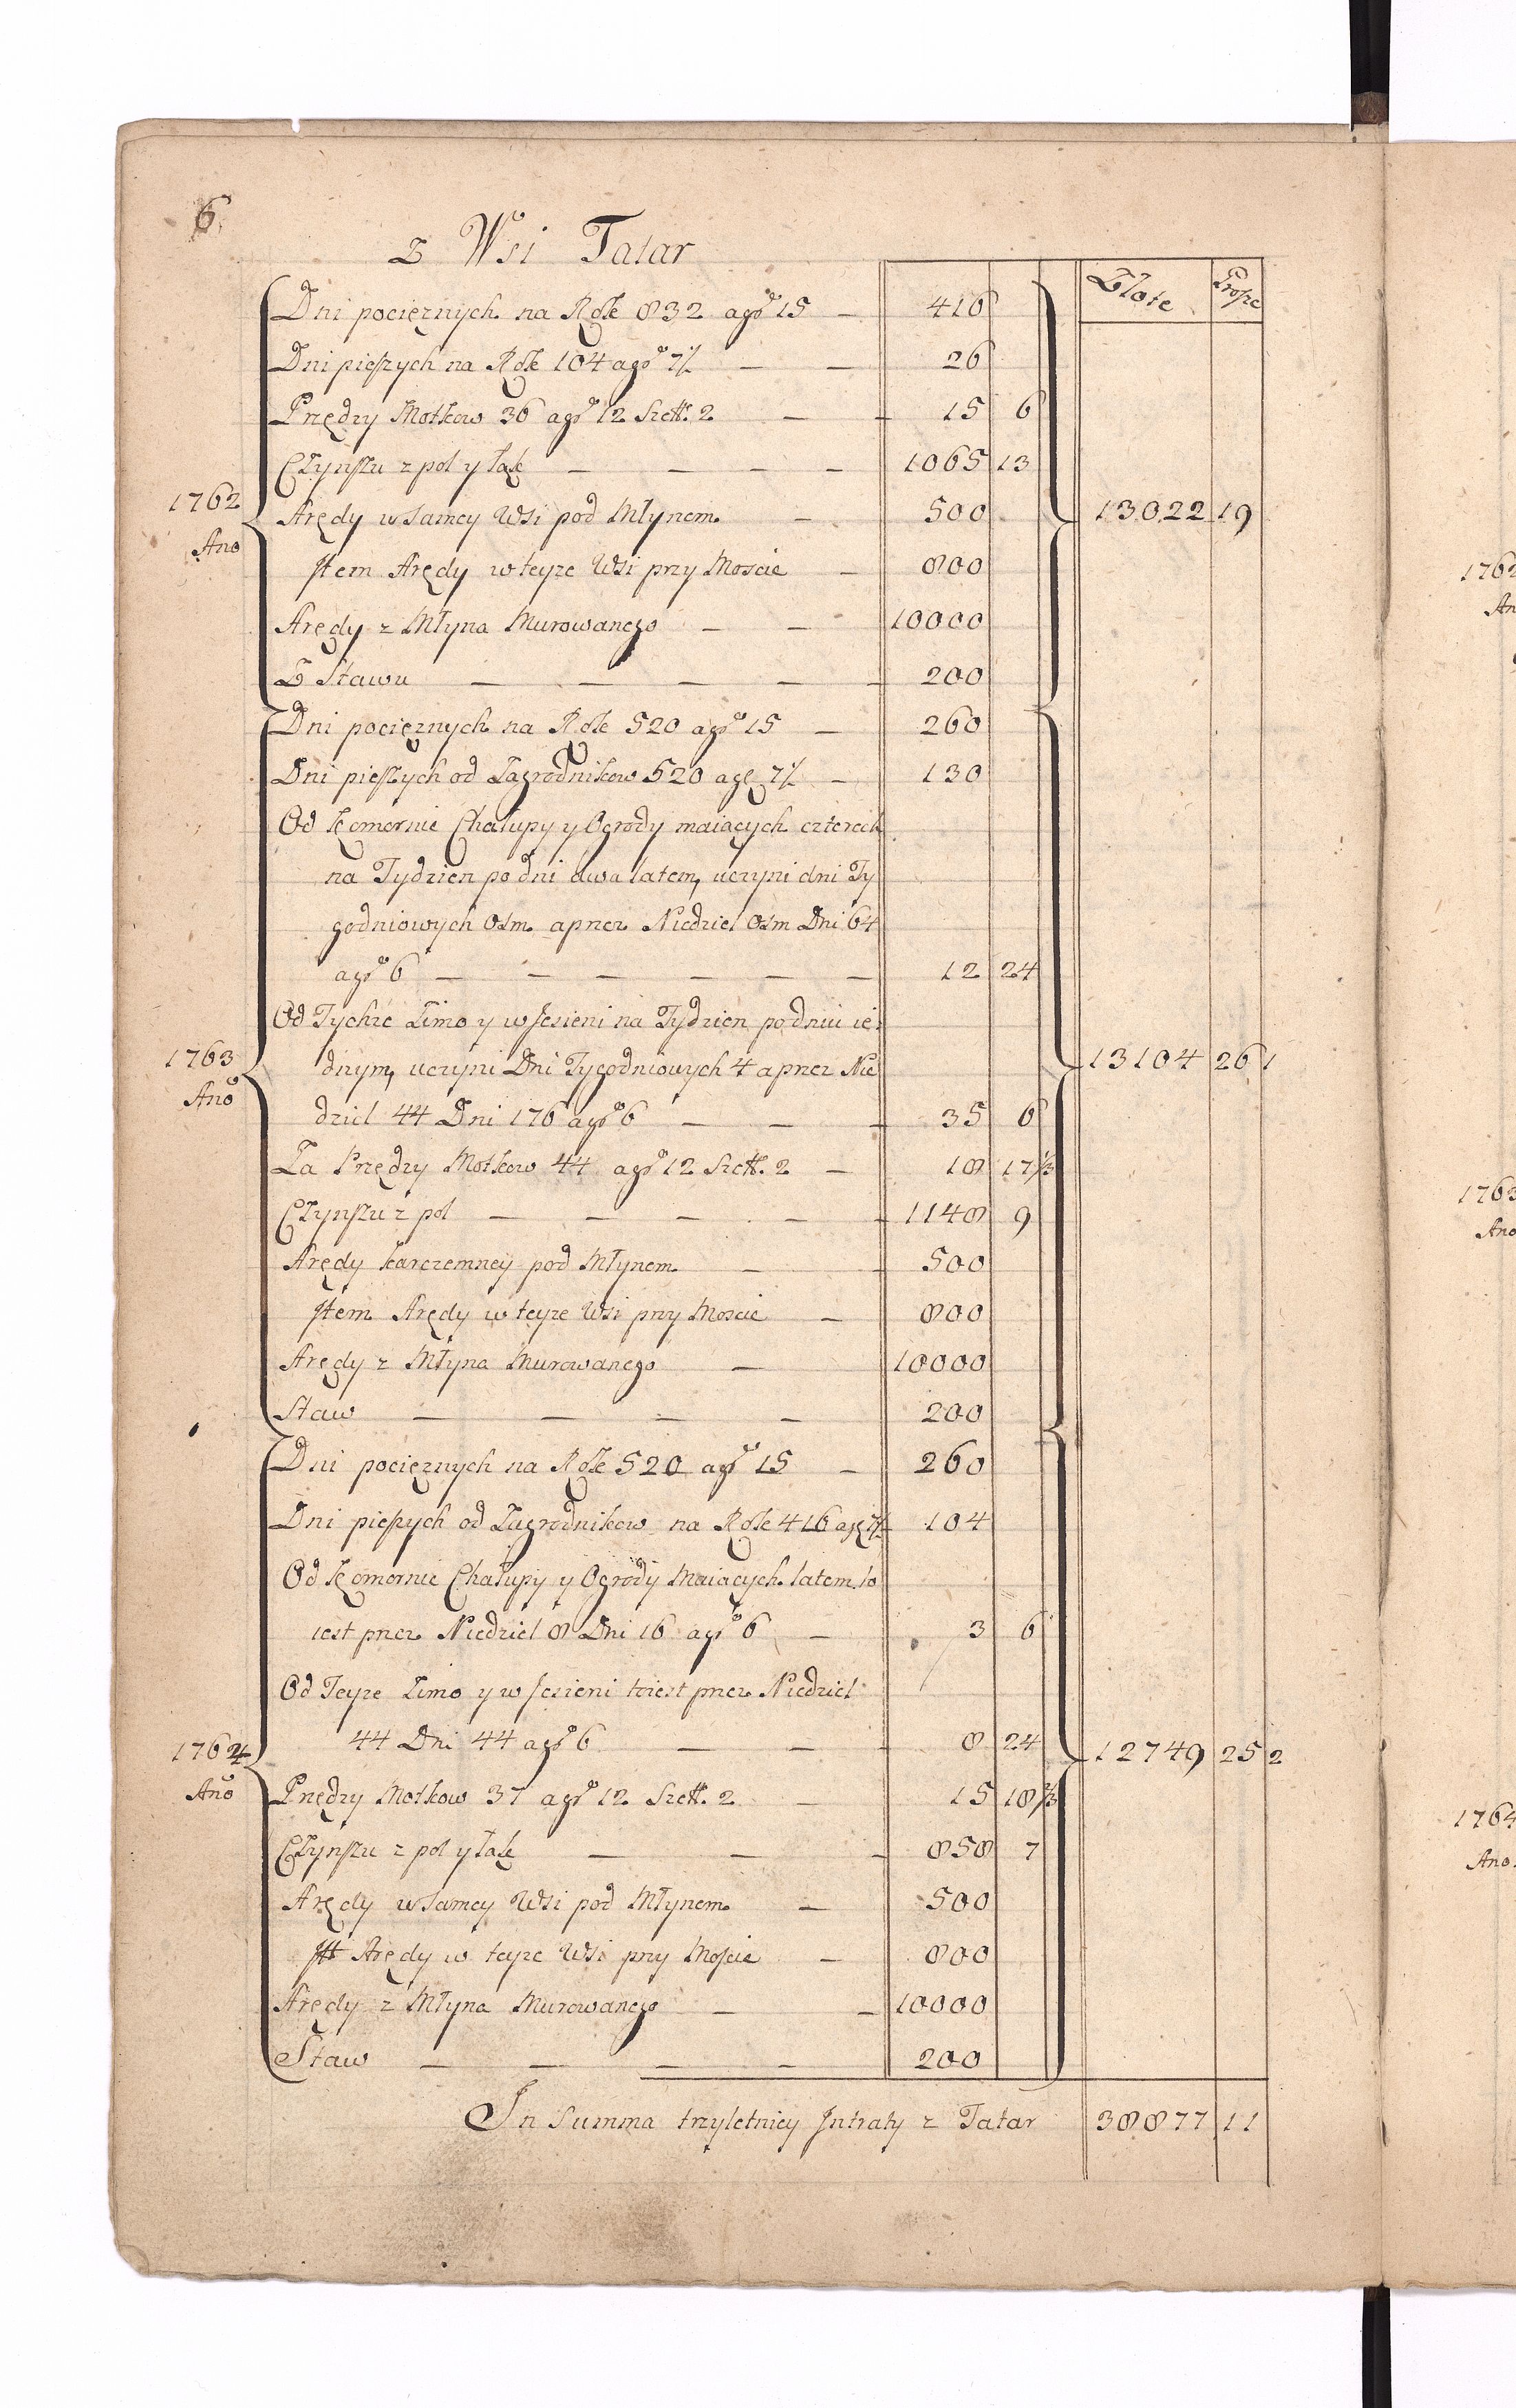 6
Z Wsi Tatar
Złote Grosze
Dni pociężnych na Rok 832 a gr 15 — 416
Dni pieszych na Rok 104 a gr 7½ — — 26
Przędzy Motkow 36 a gr 12 Szel. 2 — — 15 6
Czynszu z pol y łąk — — — — 1065 13
1762 Arędy w samey Wsi pod Młynem — 500 13022 19
Ano Item Arędy w teyze Wsi przy Moscie — 800
Arędy z Młyna Murowanego — — 10000
Z Stawu — — — — — 200
Dni pociężnych na Rok 520 a gr 15 — 260
Dni pieszych od Zagrodnikow 520 a gr 7½ — 130
Od Komornic Chałupy y Ogrody maiących czterech
na Tydzien po dni dwa latem, uczyni dni Ty
godniowych Osm a przez Niedziel Osm Dni 64
a gr 6 — — — — — — 12 24
Od Tychże Zimo y w Jesieni na Tydzien po dniu ie
1763 dnym, uczyni Dni Tygodniowych 4 a przez Nie 13104 26 1
Ano dziel 44 Dni 176 a gr 6 — — — 35 6
Za Przędzy Motkow 44 a gr 12 Szel. 2 — 18 17⅓
Czynszu z pol — — — — — 1148 9
Arędy karczemney pod Młynem — — 500
Item Arędy w teyze Wsi przy Moscie — 800
Arędy z Młyna Murowanego — 10000
Staw — — — — 200
Dni pociężnych na Rok 520 a gr 15 — 260
Dni pieszych od Zagrodnikow na Rok 416 a gr 7½ 104
Od Komornic Chałupy y Ogrody Maiących latem to
iest przez Niedziel 8 Dni 16 a gr 6 — 3 6
Od Teyze Zimo y w Jesieni toiest przez Niedziel
1764 44 Dni 44 a gr 6 — — — 8 24 12749 25 2
Ano Przędzy Motkow 37 a gr 12 Szel. 2 — 15 18⅔
Czynszu z pol y łąk — — — 858 7
Arędy w samey Wsi pod Młynem — 500
It Arędy w teyze Wsi przy Moscie — 800
Arędy z Młyna Murowanego — — 10000
Staw — — — — 200
In Summa trzyletniey Intraty z Tatar 38877 11
1762
An
1763
Ano
1764
Ano.